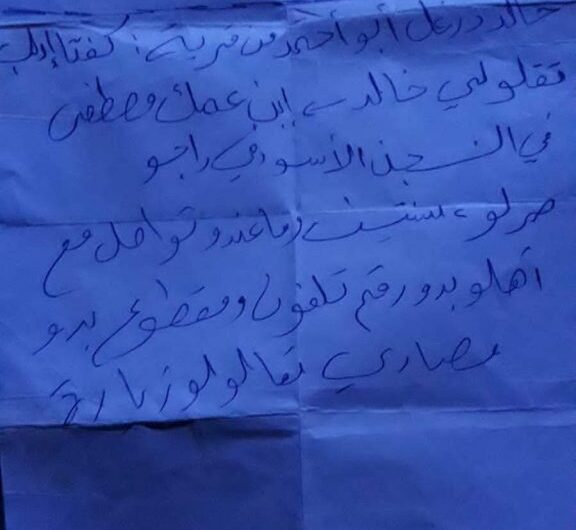 خالد درغل أبو أحمد من قرية: كفتا إدلب
تقلولي خالد ابن عمك مصطفى
في السجن الأسود في راجو
صرلو سنتين وما عندو تواصل مع
أهلو بدو رقم تلفون ومقطوع بدو
مصاري تعالولو زيارة